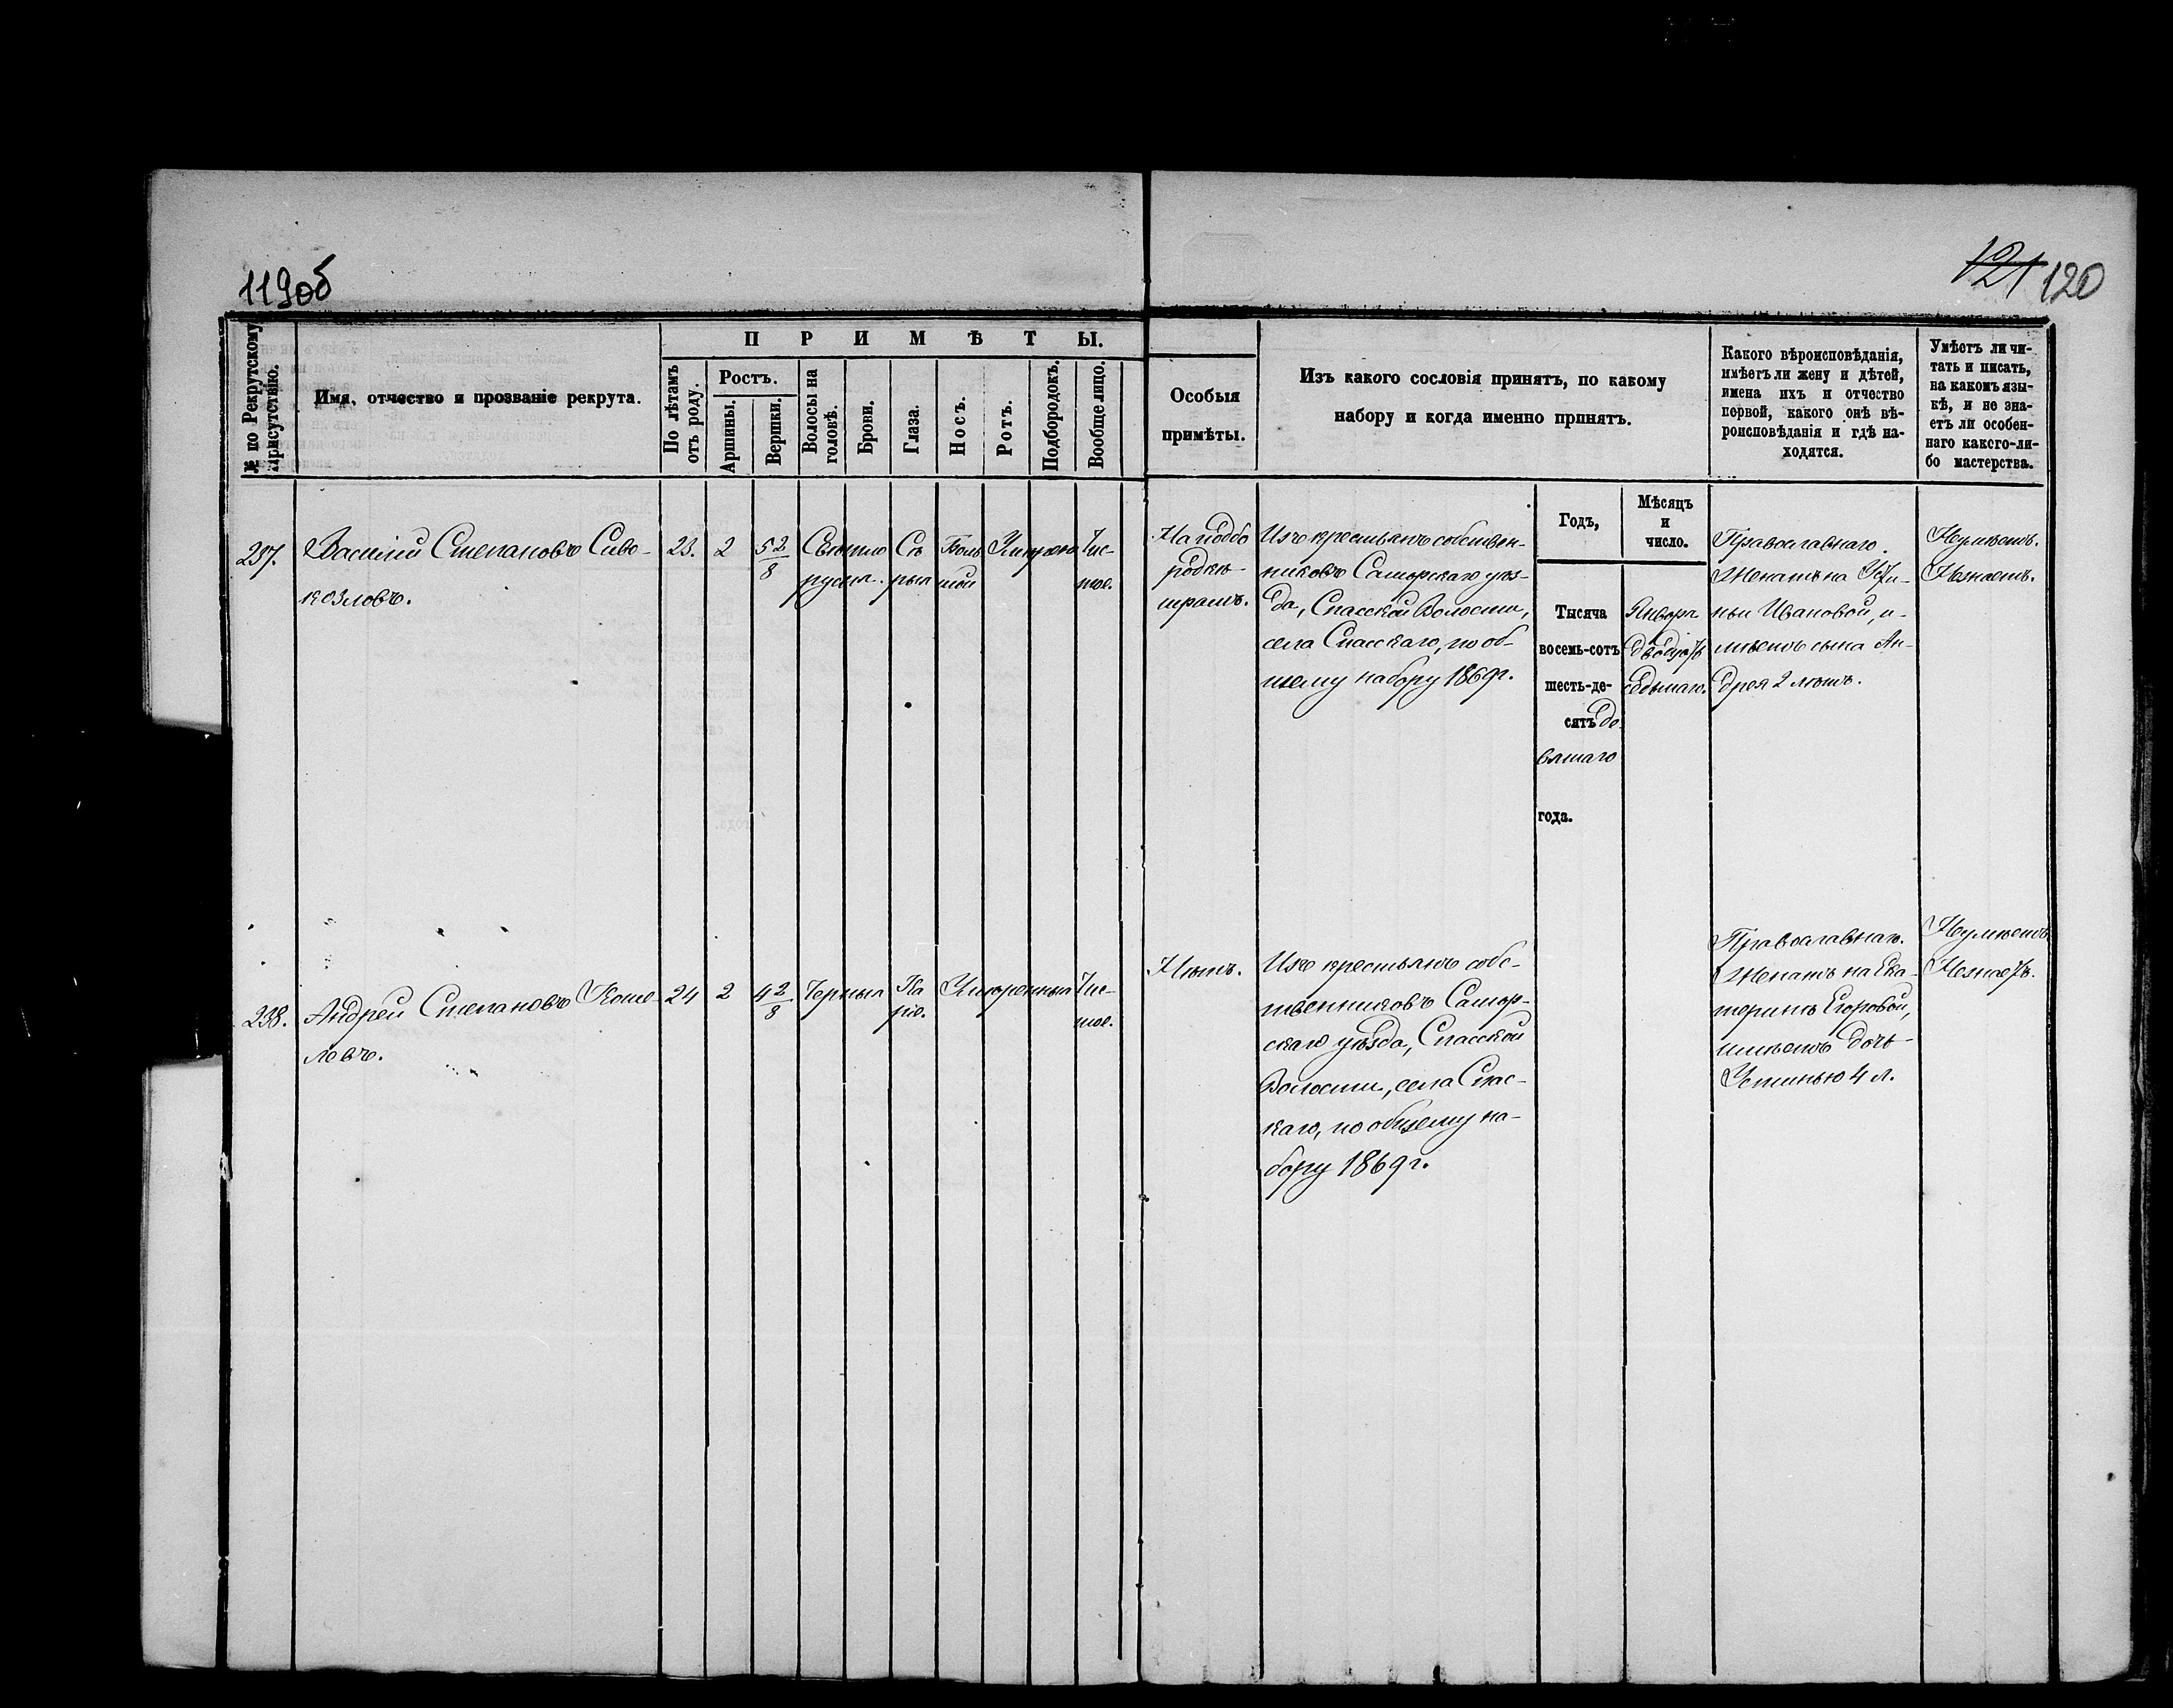 119об
121 120
№ по Рекрутскому
присутствію.
Имя, отчество и прозваніе рекрута.
ПРИМѢТЫ.
По лѣтамъ
отъ роду.
Ростъ.
Аршины.
Вершки.
Волосы на
головѣ.
Брови.
Глаза.
Носъ.
Ротъ.
Подбородокъ.
Вообще лицо.
Особыя
примѣты.
Изъ какого сословія принятъ, по какому
набору и когда именно принятъ.
Какого вѣроисповѣданія,
имѣетъ ли жену и дѣтей,
имена ихъ и отчество
первой, какого онѣ вѣ-
роисповѣданія и гдѣ на-
ходятся.
Умѣетъ ли чи-
тать и писать,
на какомъ язы-
кѣ, и не зна-
етъ ли особен-
наго какого-ли-
бо мастерства.
Годъ,
Мѣсяцъ
и
число.
237.
Василій Степановъ Сиво-
козловъ.
23.
2
5 2/8
Свѣтло
русыя.
Сѣ
рыя
Боль
шой
Умѣрен
Чис-
тое.
На подбо
родкѣ
шрамъ.
Изъ крестьянъ собствен-
никовъ Самарскаго уѣз-
да, Спасской Волости,
села Спасскаго, по об-
щему набору 1869 г.
Тысяча
восемь-сотъ
шесть-де-
сятъ де-
вятаго
года.
Января
двадцать
седьмаго.
Православнаго.
Женатъ на Усти-
ньи Ивановой, и-
мѣетъ сына Ан-
дрея 2 лѣтъ.
Неумѣетъ.
Незнаетъ.
238.
Андрей Степановъ Коше-
левъ.
24
2
4 2/8
Черныя
Ка
ріе.
Умѣренный
Чис-
тое.
Нѣтъ.
Изъ крестьянъ собс-
твенниковъ Самар-
скаго уѣзда, Спасской
Волости, села Спас-
скаго, по общему на-
бору 1869 г.
Православнаго.
Женатъ на Ека-
теринѣ Егоровой,
имѣетъ дочь
Устинью 4 л.
Неумѣетъ
Незнаетъ.